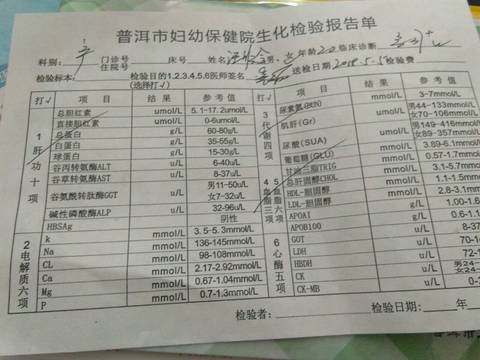 普洱市妇幼保健院生化检验报告单
科别: 产 门诊号 住院号 床号 姓名 男、女 年龄20 临床诊断
检验标本: 检验目的1.2.3.4.5.6医师签名 送检日期2018.5-5检验费
(选择打√)
打√ 项目 结果 参考值 打√ 项目 结果 参考值
1肝功十项
总胆红素 umol/L 5.1-17.2umol/L
直接胆红素 umol/L 0-6umol/L
总蛋白 g/L 60-80g/L
白蛋白 g/L 35-55g/L
球蛋白 g/L 15-30g/L
谷丙转氨酶ALT u/L 6-40u/L
谷草转氨酶AST u/L 8-37u/L
谷氨酸转肽酶GGT u/L 男11-50u/L 女7-32u/L
碱性磷酸酶ALP u/L 32-96u/L
HBSAg 阴性
2电解质六项
k mmol/L 3.5-5.3mmol/L
Na mmol/L 136-145mmol/L
CL mmol/L 98-108mmol/L
Ca mmol/L 2.17-2.92mmol/L
Mg mmol/L 0.67-1.04mmol/L
P mmol/L 0.7-1.3mmol/L
3代谢四项
尿素氮 mmol/L 3-7mmol/L
肌肝(Gr) umol/L 男44-133mmol/L 女70-106mmol/L
尿酸(SUA) umol/L 男149-416mmol/L 女89-357mmol/L
葡萄糖(GLU) mmol/L 3.89-6.1mmol/L
甘油三脂TRIG mmol/L 0.57-1.7mmol/L
总胆固醇CHOL mmol/L 3.1-5.7mmol/L
HDL-胆固醇 mmol/L 1.1-1.5mmol
LDL-胆固醇 mmol/L 2.8-3.1mmol
APOAI g/L 1.00-1.6
APOB100 g/L 0.6-1.1
6心酶五项
GOT u/L 8-37
LDH u/L 70-
HBDH u/L 72-1
CK u/L 男24- 女24-
CK-MB u/L 0-2
检验者: 检验日期: 年